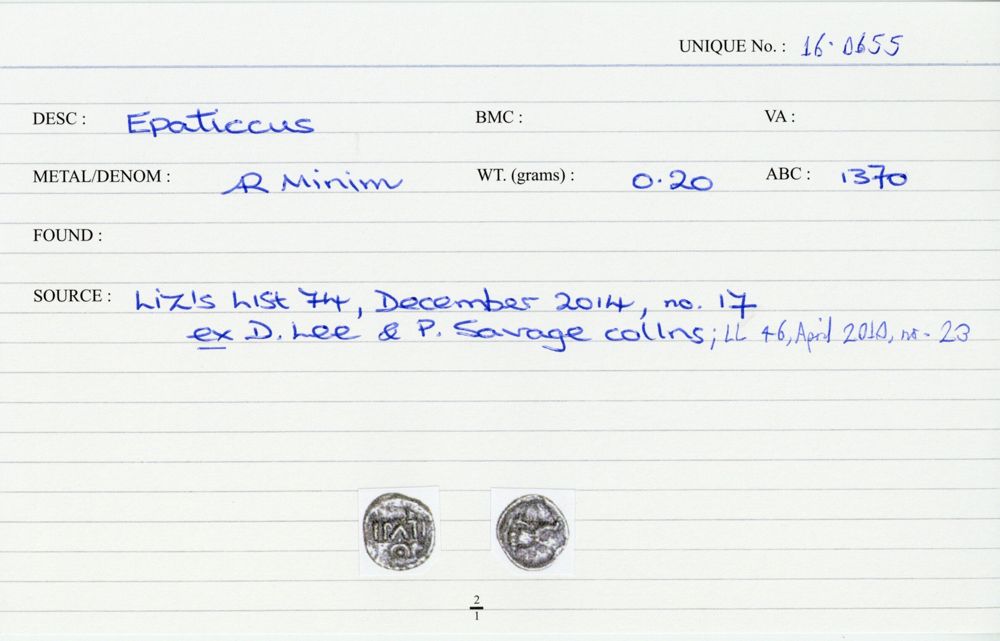 UNIQUE No. : 16·0655
DESC : Epaticcus BMC : VA :
METAL/DENOM : AR Minim WT. (grams) : 0·20 ABC : 1370
FOUND :
SOURCE : Liz's List 74, December 2014, no. 17
ex D. Lee & P. Savage collns; LL 46, April 2010, no. 23
2
1